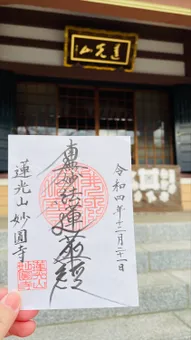 蓮光山
令和四年十二月二十一日
南無妙法蓮華経
蓮光山 妙圓寺